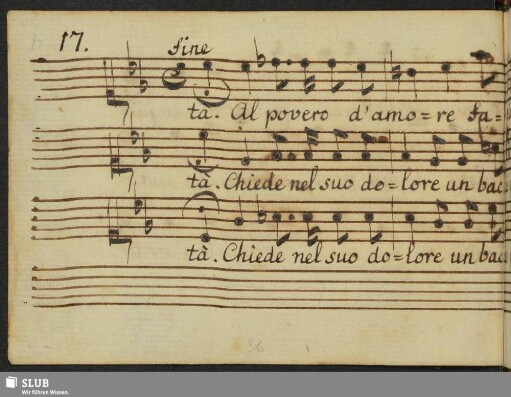 17.
fine
ta. Al povero d'amo=re Fa=
tà. Chiede nel suo do=lore un bac
tà. Chiede nel suo do=lore un bac
36
SLUB
Wir führen Wissen.